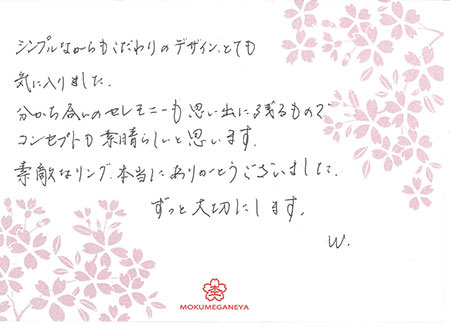 シンプルながらもこだわりのデザイン、とても
気に入りました。
分かち合いのセレモニーも思い出に残るもので
コンセプトも素晴らしいと思います。
素敵なリング、本当にありがとうございました。
ずっと大切にします。
W.
MOKUMEGANEYA